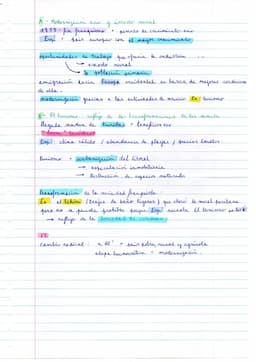 A - Modernización eco y éxodo rural
1959 - fin franquismo = periodo de crecimiento eco
Esp : país europeo con el mayor crecimiento
oportunidades de trabajo que ofrecía la industria ...
→ éxodo rural
→ la población primaria
emigración hacia Europa occidental en busca de mejores condiciones
de vida.
modernización gracias a las actividades de servicio En turismo
B - El turismo, reflejo de las transformaciones de la sociedad
llegada masiva de turistas = beneficioso
"boom" turístico
Esp : clima cálido / abundancia de playas / precios baratos
Turismo → urbanización del litoral
→ especulación inmobiliaria
→ destrucción de espacios naturales
Transformación de la sociedad franquista
Ex : el bikini (traje de baño ligero) que chocó la moral
pero no se puede prohibir porque Esp necesita el turismo
→ reflejo de la sociedad de consumo
cambio radical : = país pobre, rural y agrícola
modernización.